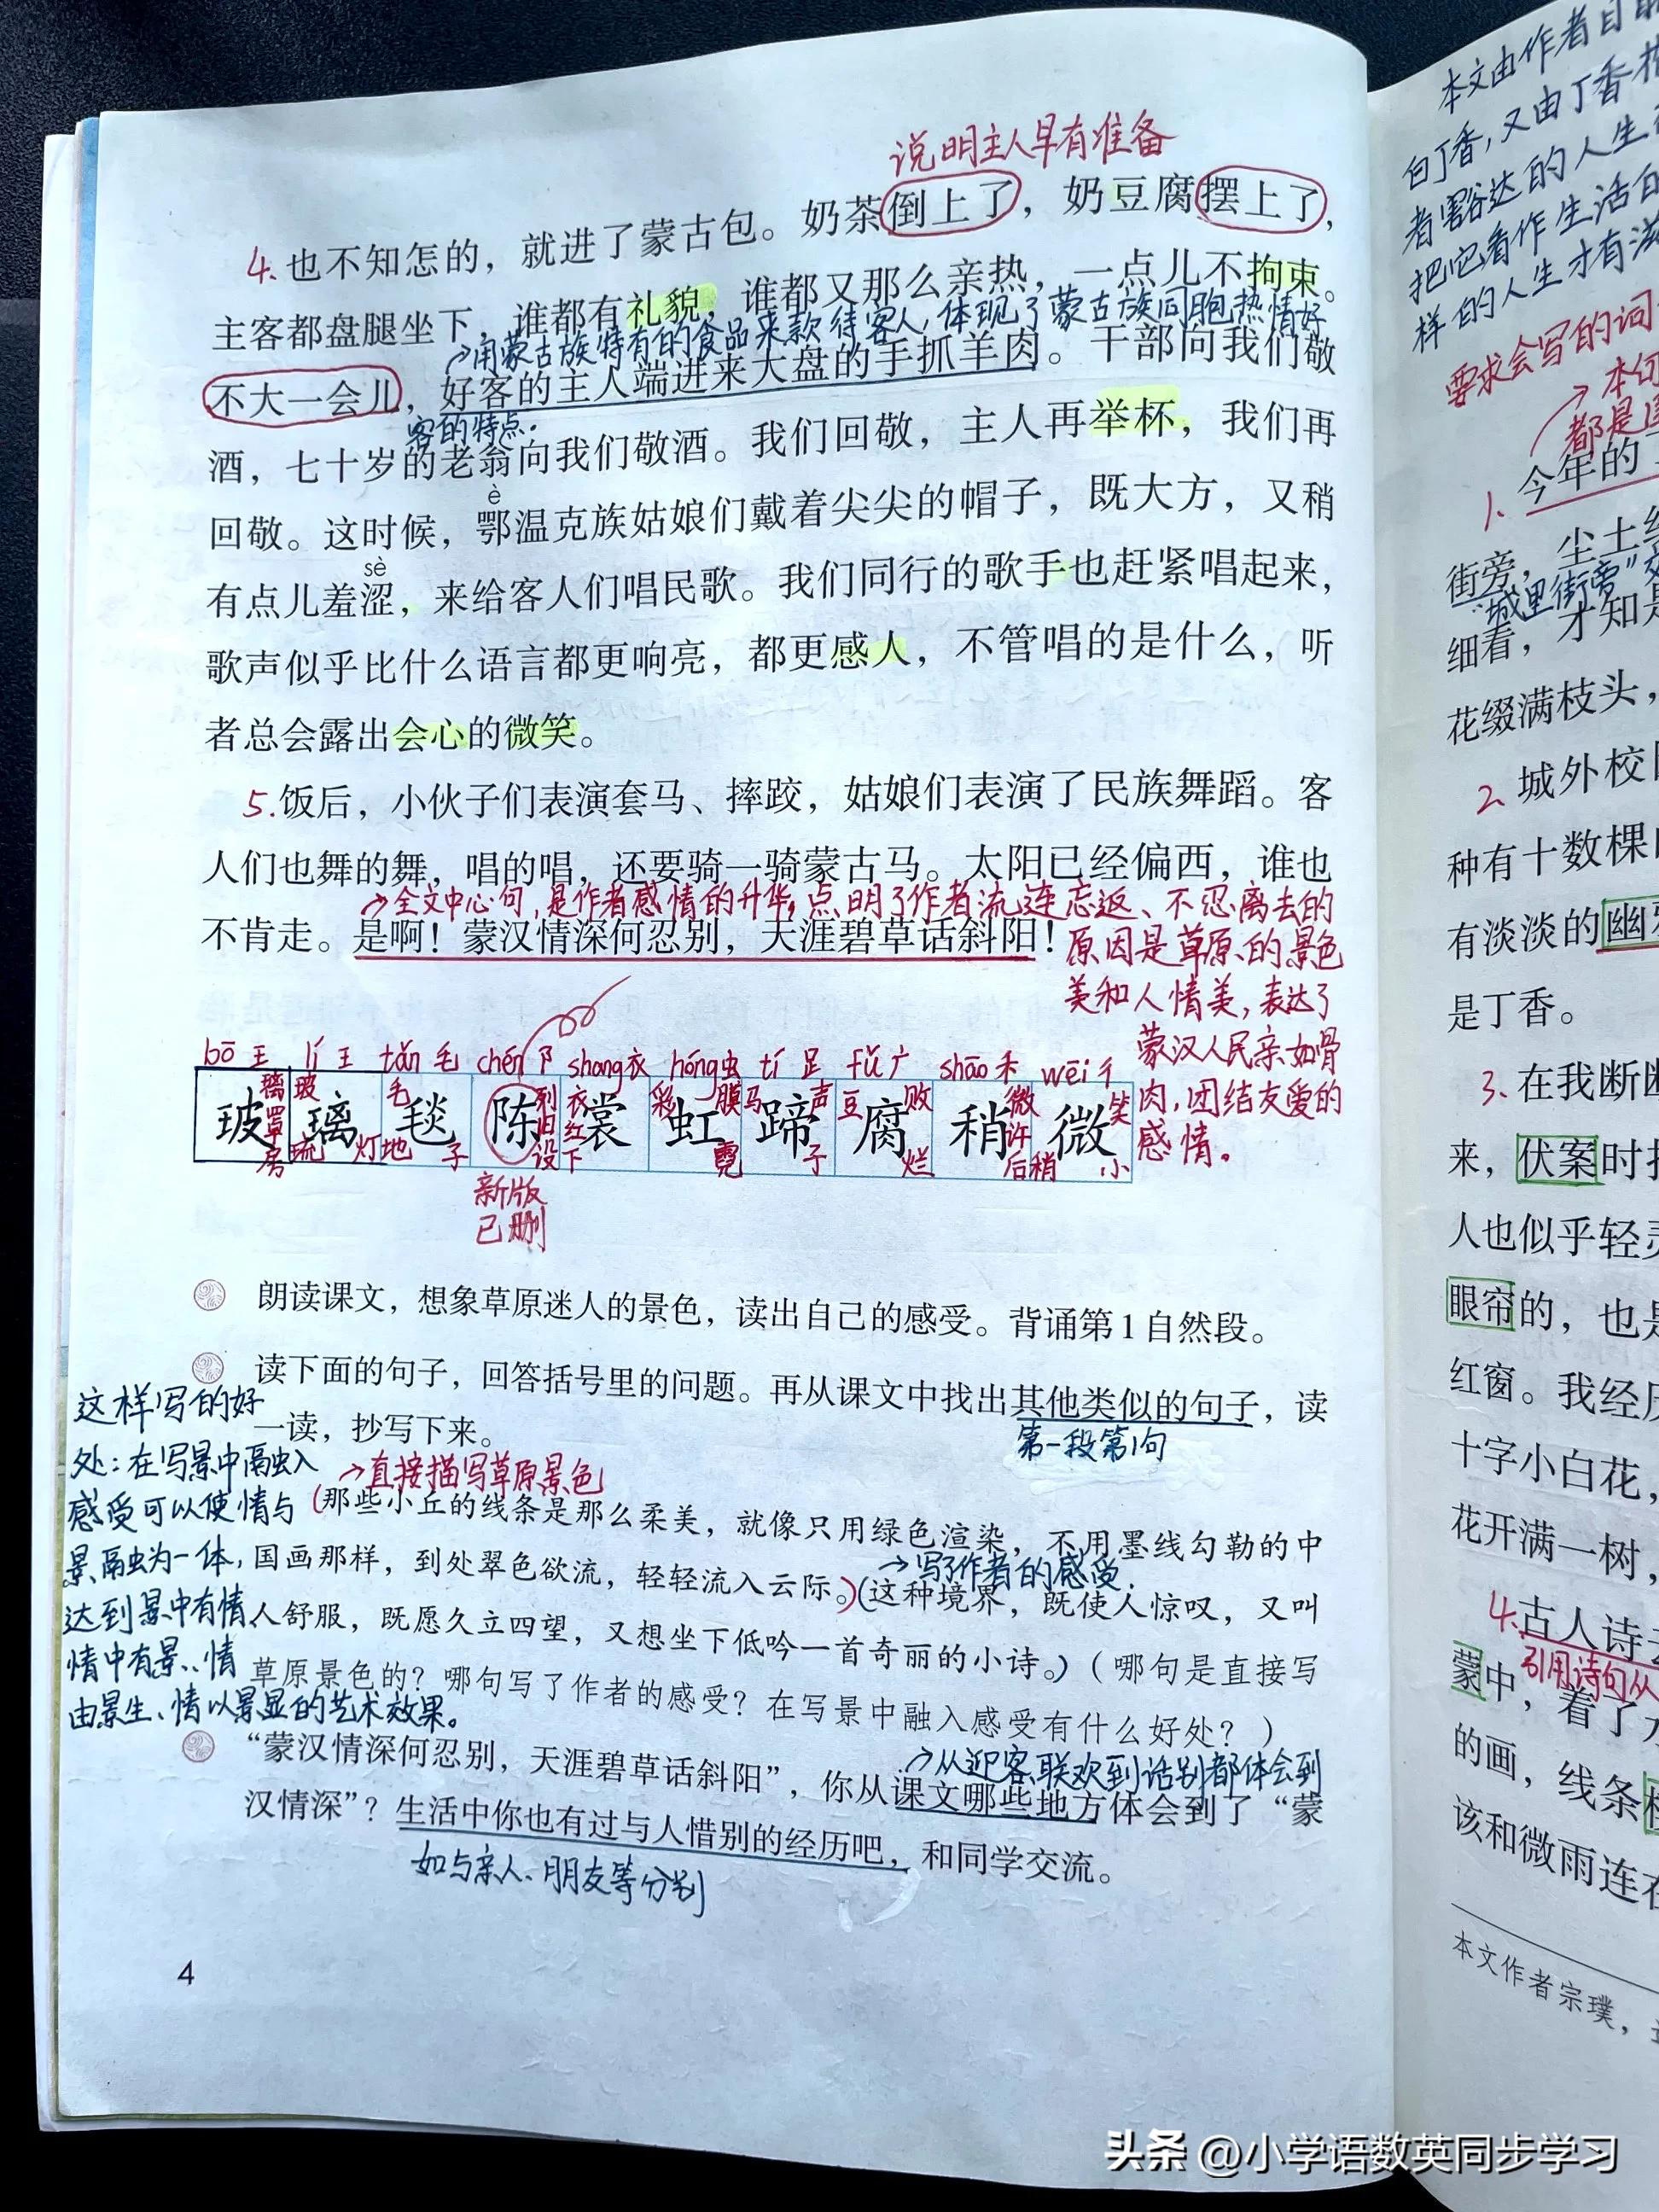 说明主人早有准备
4.也不知怎的，就进了蒙古包。奶茶倒上了，奶豆腐摆上了，
主客都盘腿坐下，谁都有礼貌，谁都又那么亲热，一点儿不拘束。
→用蒙古族特有的食品来款待客人，体现了蒙古族同胞热情好
不大一会儿，好客的主人端进来大盘的手抓羊肉。干部向我们敬
客的特点.
酒，七十岁的老翁向我们敬酒。我们回敬，主人再举杯，我们再
è
回敬。这时候，鄂温克族姑娘们戴着尖尖的帽子，既大方，又稍
sè
有点儿羞涩，来给客人们唱民歌。我们同行的歌手也赶紧唱起来，
歌声似乎比什么语言都更响亮，都更感人，不管唱的是什么，听
者总会露出会心的微笑。
5.饭后，小伙子们表演套马、摔跤，姑娘们表演了民族舞蹈。客
人们也舞的舞，唱的唱，还要骑一骑蒙古马。太阳已经偏西，谁也
→全文中心句,是作者感情的升华,点明了作者流连忘返、不忍离去的
不肯走。是啊！蒙汉情深何忍别，天涯碧草话斜阳！
原因是草原的景色
美和人情美，表达了
蒙汉人民亲如骨
肉，团结友爱的
感情。
bō 王 lí 王 tǎn 毛 chén 阝 shang 衣 hóng 虫 tí 足 fǔ 广 shāo 禾 wēi 彳
玻 璃 毯 陈 裳 虹 蹄 腐 稍 微
璃 罩 房
玻 琉 灯
毛 地 子
列 旧 设
衣 红 下
彩 膜 霓
马 声 子
豆 败 烂
微 许 后稍
笑 小
新版
已删
朗读课文，想象草原迷人的景色，读出自己的感受。背诵第1自然段。
读下面的句子，回答括号里的问题。再从课文中找出其他类似的句子，读
一读，抄写下来。
第一段第1句
→直接描写草原景色
(那些小丘的线条是那么柔美，就像只用绿色渲染，不用墨线勾勒的中
国画那样，到处翠色欲流，轻轻流入云际。)(这种境界，既使人惊叹，又叫
→写了作者的感受.
人舒服，既愿久立四望，又想坐下低吟一首奇丽的小诗。)（哪句是直接写
草原景色的？哪句写了作者的感受？在写景中融入感受有什么好处？）
这样写的好
处：在写景中融入
感受可以使情与
景融为一体，
达到景中有情
情中有景、情
由景生、情以景显的艺术效果。
“蒙汉情深何忍别，天涯碧草话斜阳”，你从课文哪些地方体会到了“蒙
→从迎客、联欢到话别都体会到
汉情深”？生活中你也有过与人惜别的经历吧，和同学交流。
如与亲人、朋友等分别
4
本文由作者
白丁香，又由丁香
者豁达的人生
把它看作生活的
样的人生才有滋
要求会写的词
→本
都是
1.今年的
街旁，尘土
“城里街旁”
细看，才知是
花缀满枝头，
2.城外校
种有十数棵
有淡淡的幽
是丁香。
3.在我断断
来，伏案时
人也似乎轻
眼帘的，也是
红窗。我经
十字小白花，
花开满一树，
4.古人诗
引用诗句从
蒙中，着了
的画，线条
该和微雨连在
本文作者宗璞，
头条 @小学语数英同步学习